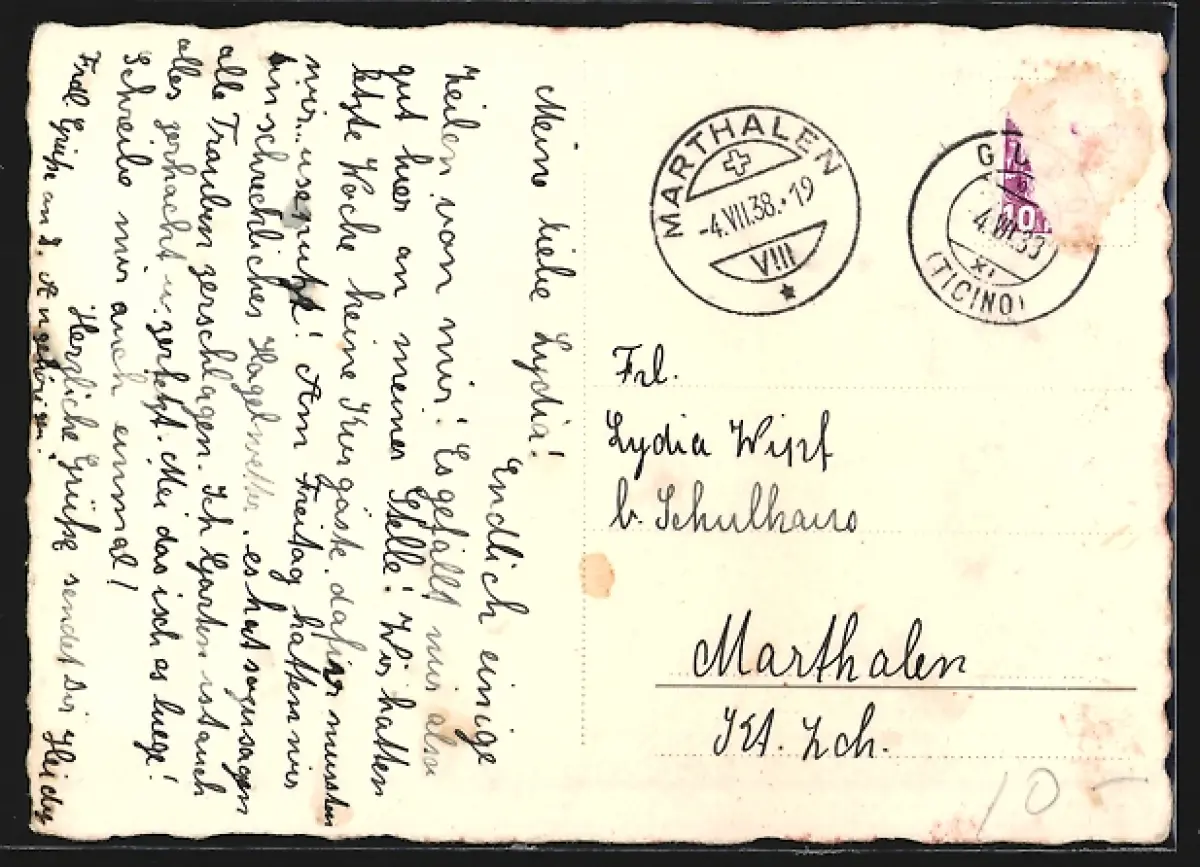 Meine liebe Lydia!
Endlich einige
Zeilen von mir! Es gefällt mir also
gut hier an meiner Stelle! Wir hatten
letzte Woche keine Kurgäste. dafür mussten
wir. Am Freitag hatten wir
ein schreckliches Hagelwetter. es hat sozusagen
alle Trauben zerschlagen. Ich Garten ist auch
alles zerhackt u. zerfetzt. Mei das isch es luege!
Schreibe mir auch einmal!
Herzliche Grüsse sendet Dir Heidy
Frdl. Grüsse an d. Angehörigen!
MARTHALEN
-4.VII.38.-19
VIII
G
10
-4.VII.33
XI
(TICINO)
Frl.
Lydia Wipf
b. Schulhaus
Marthalen
Kt. Zch.
10-